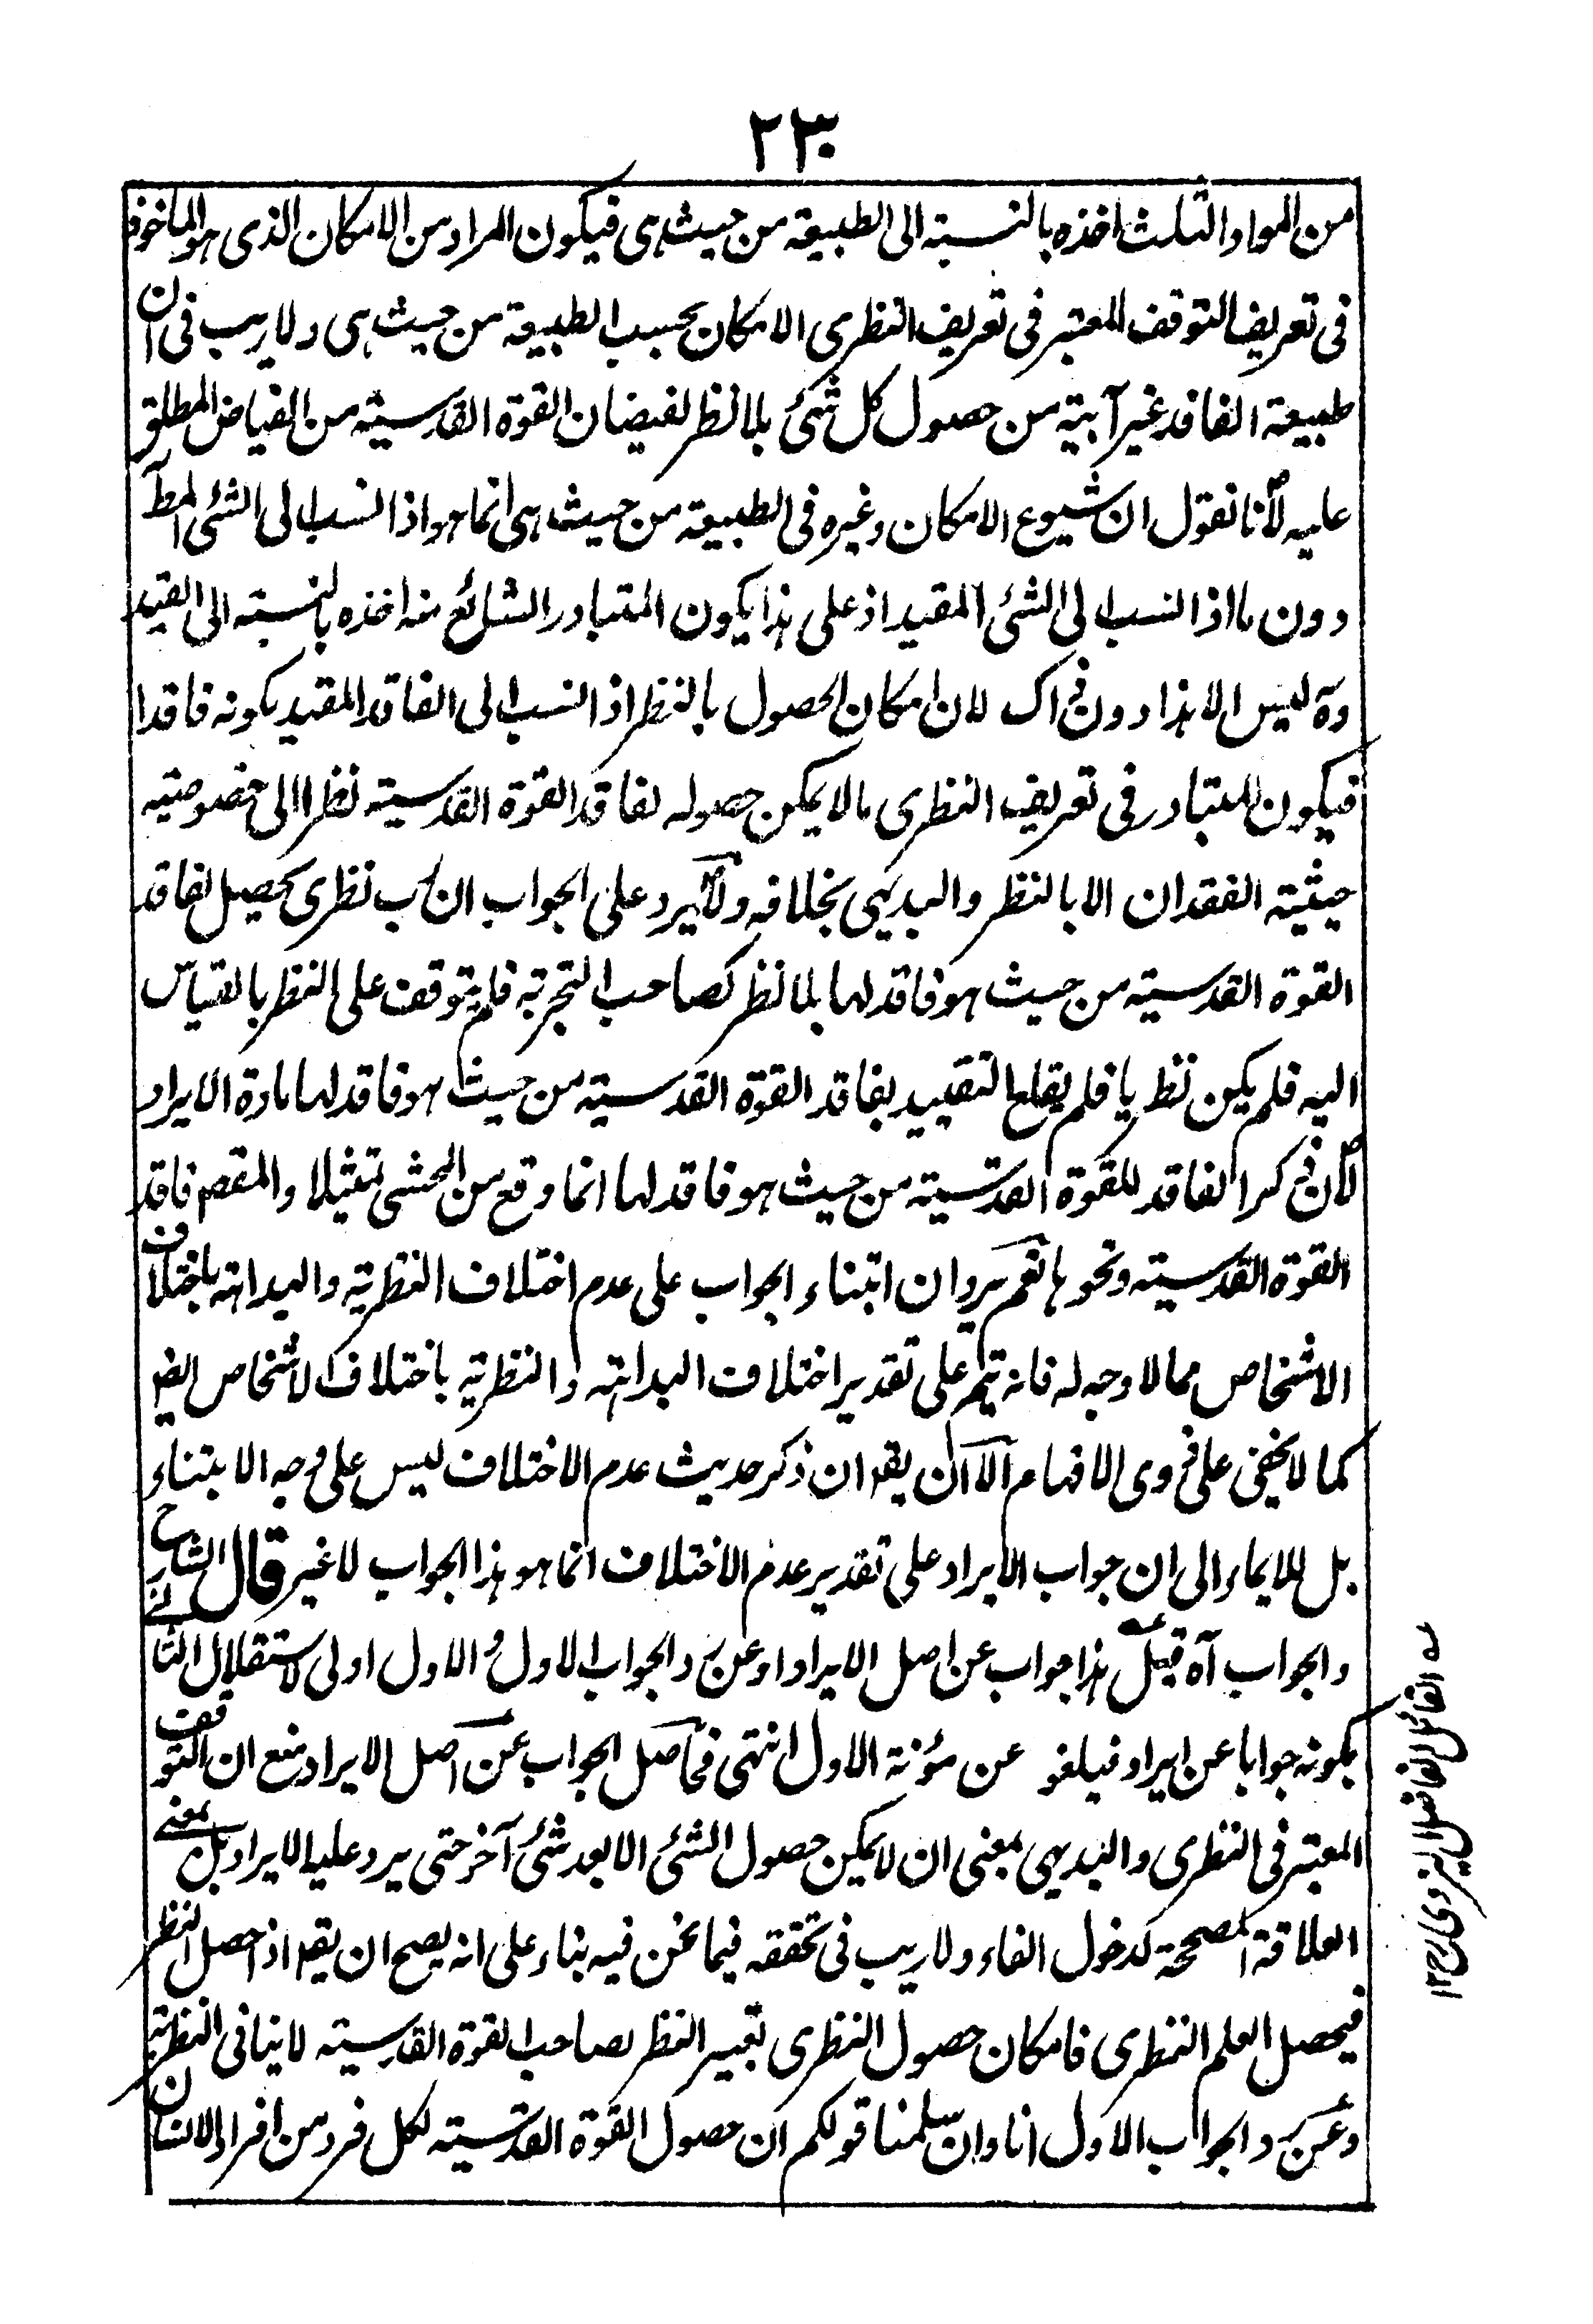 ٢٣٠
من المواد الثلث اخذه بالنسبته الى الطبيعة من حيث هى فيكون المراد من الامكان الذى هو الماخوذ
فى تعريف التوقف المعتبر فى تعريف النظرى الامكان بحسب الطبيعة من حيث هى ولا ريب فى ان
طبيعة الفاقد غير آبية من حصول كل شئ بلا نظر لفيضان القوة القدسية من الفياض المطلق
عليه لانا نقول ان شيوع الامكان وغيره فى الطبيعة من حيث هى انما هو اذا نسب الى الشئ المط
دون ما اذا نسب الى الشئ المقيد اذ على هذا يكون المتبادر الشائع منه اخذه بالنسبته الى القيد
وة ليس الا هذا دون ذاك لان امكان الحصول بالنظر اذا نسب الى الفاقد المقيد بكونه فاقدا
فيكون المتبادر فى تعريف النظرى ما لا يمكن حصوله لفاقد القوة القدسية نظرا الى خصوصية
حيثية الفقدان الا بالنظر والبديهى بخلافه ولا يرد على الجواب ان رب نظرى يحصل لفاقد
القوة القدسية من حيث هو فاقد لها بلا نظر كصاحب التجربة فلم يتوقف على النظر بالقياس
اليه فلم يكن نظريا فلم يقلع التقييد بفاقد القوة القدسية من حيث هو فاقد لها مادة الايراد
لان ذكر الفاقد للقوة القدسية من حيث هو فاقد لها انما وقع من المحشى تمثيلا والمقصم فاقد
القوة القدسية ونحوها نعم يرد ان ابتناء الجواب على عدم اختلاف النظرية والبداهة باختلاف
الاشخاص مما لا وجه له فانه يتم على تقدير اختلاف البداهة والنظرية باختلاف الاشخاص ايضا
كما لا يخفى على ذوى الافهام الا ان يقم ان ذكر حديث عدم الاختلاف ليس على وجه الابتناء
بل للايماء الى ان جواب الايراد على تقدير عدم الاختلاف انما هو هذا الجواب لا غير قال الشارح
والجواب آه قيل هذا جواب عن اصل الايراد او عن رد الجواب الاول والاول اولى لاستقلال الثا
بكونه جوابا عن ايراد فيلغو عن مؤنة الاول انتهى فحاصل الجواب عن اصل الايراد منع ان التوقف
المعتبر فى النظرى والبديهى بمعنى ان لا يمكن حصول الشئ الا بعد شئ آخر حتى يرد عليه الايراد بل بمعنى
العلاقة المصححة لدخول الفاء ولا ريب فى تحققه فيما نحن فيه بناء على انه يصح ان يقم اذا حصل النظر
فيحصل العلم النظرى فامكان حصول النظرى بغير النظر لصاحب القوة القدسية لا ينافى النظرية
وعن رد الجواب الاول انا وان سلمنا قولكم ان حصول القوة القدسية لكل فرد من افراد الانسان
القائل الفاضل اليزدى ١٢